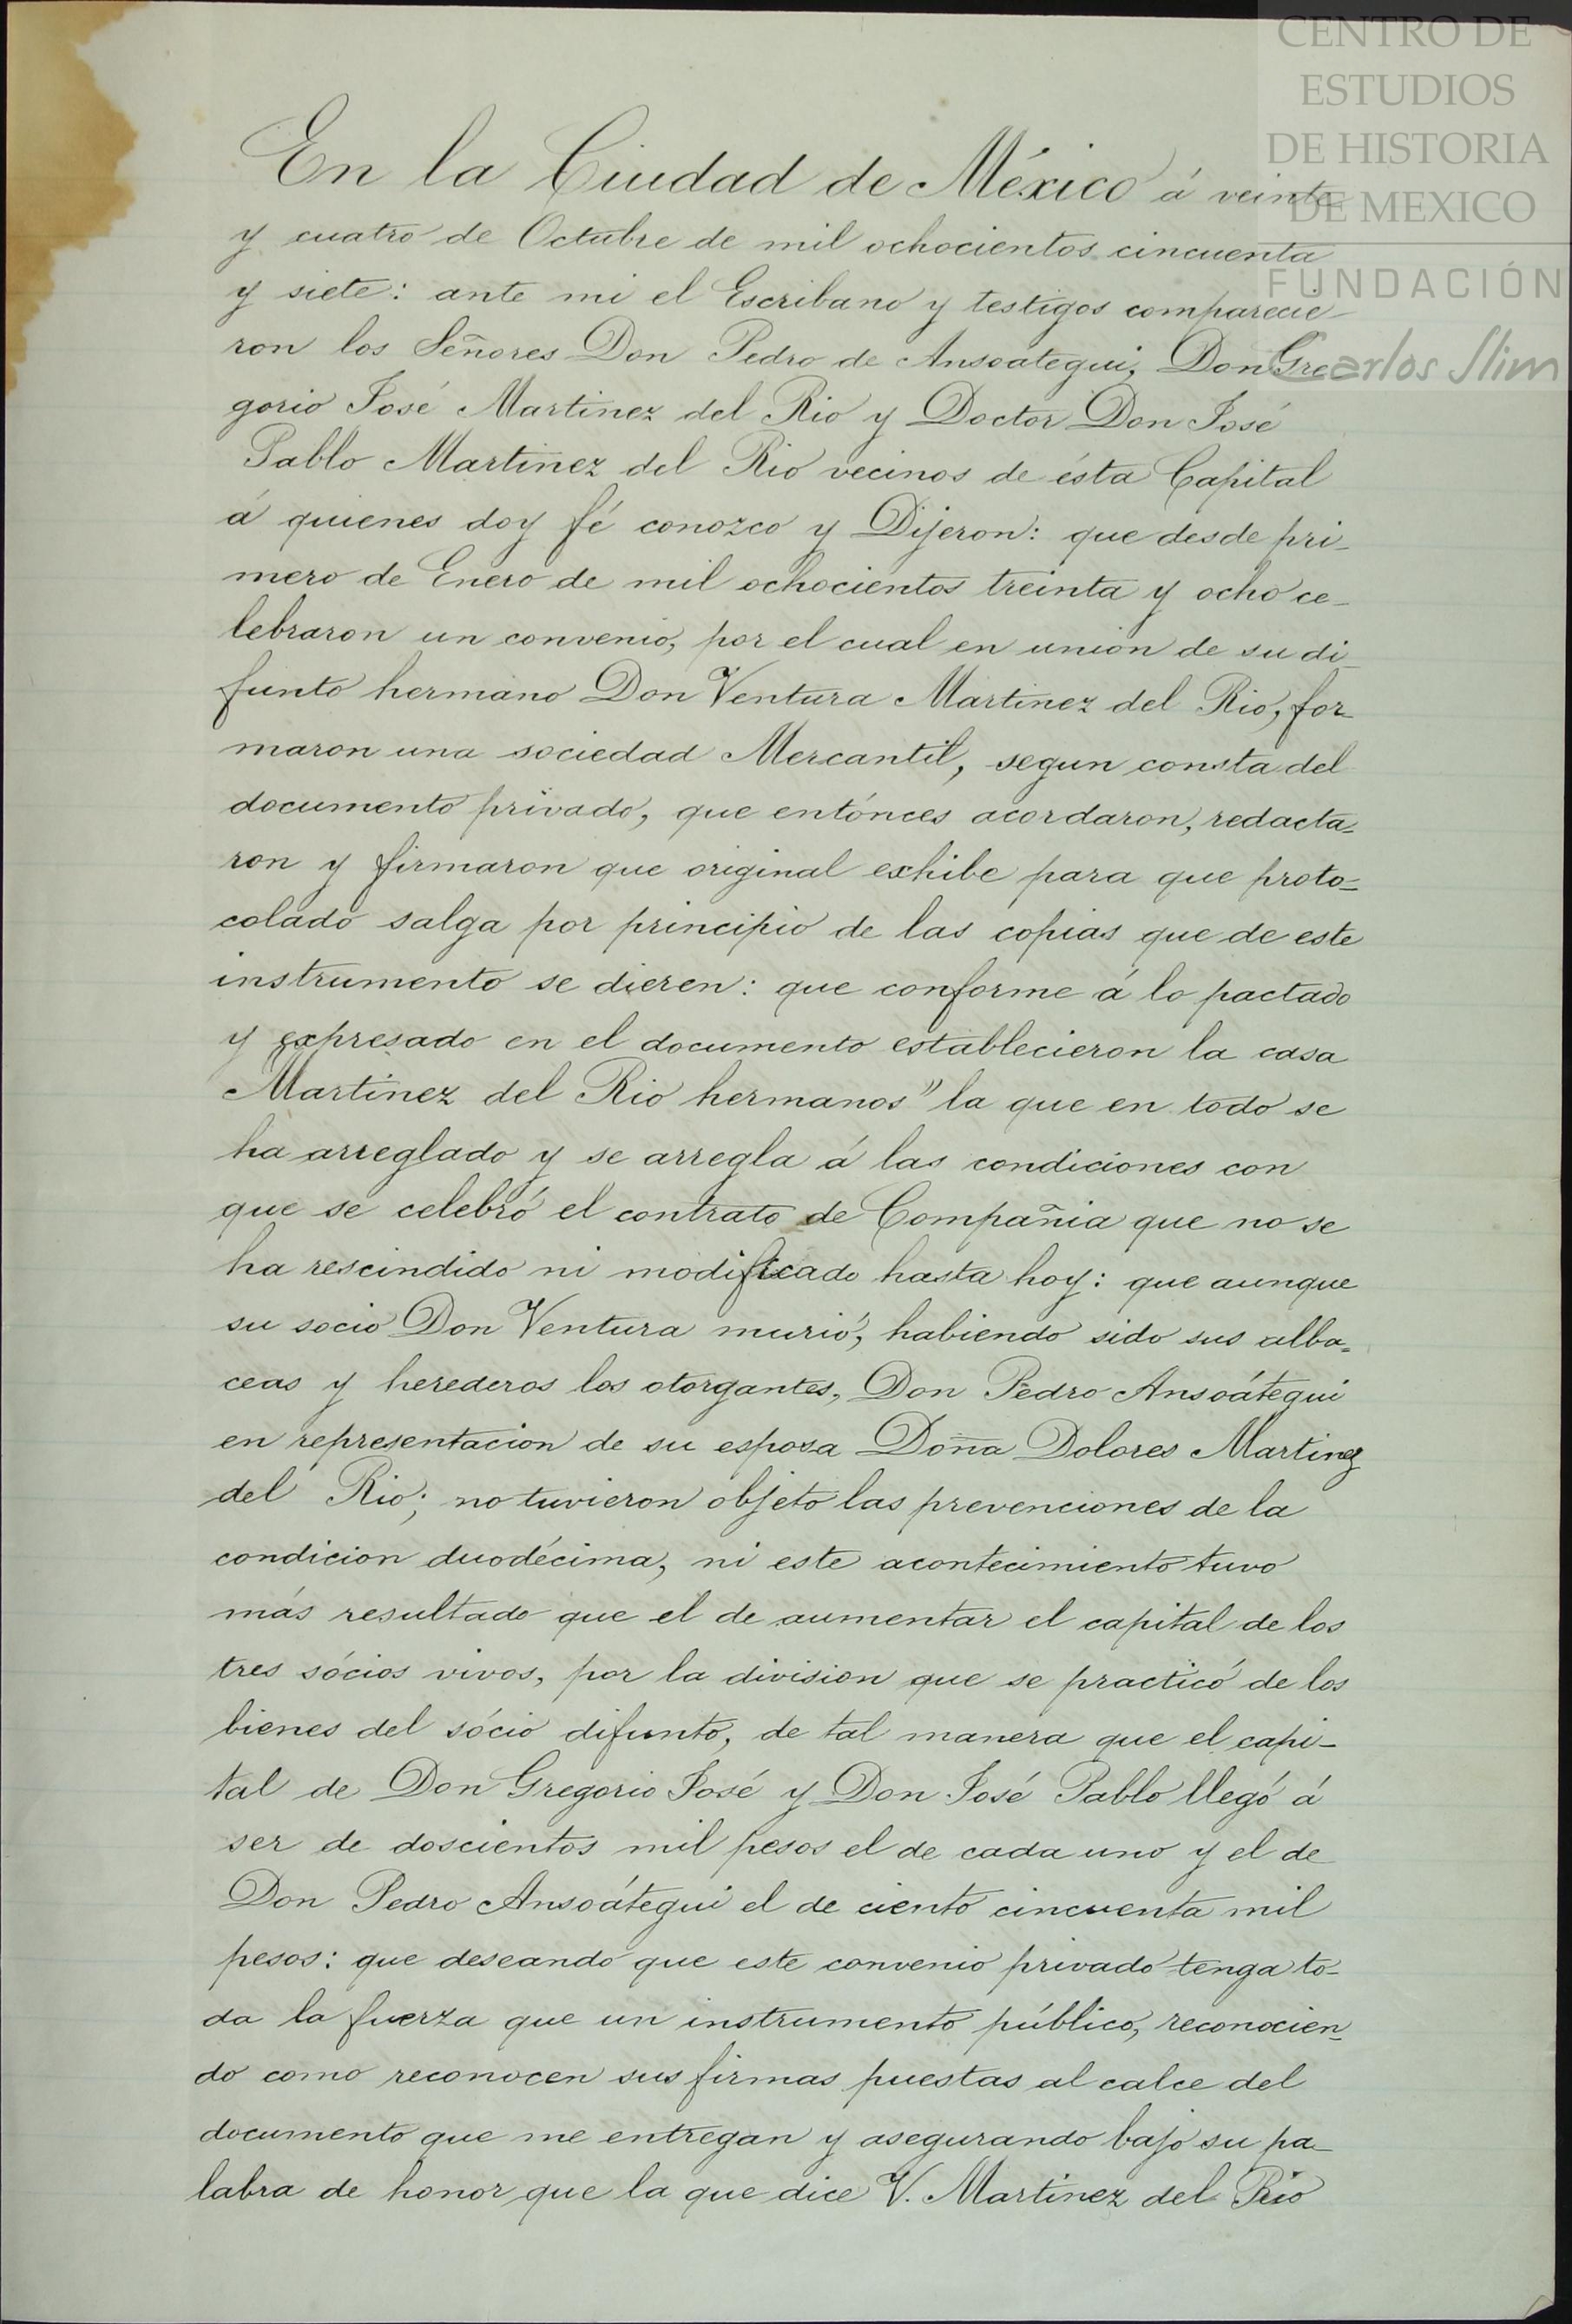 CENTRO DE
ESTUDIOS
DE HISTORIA
DE MEXICO
FUNDACIÓN
Carlos Slim
En la Ciudad de México á veinte
y cuatro de Octubre de mil ochocientos cincuenta
y siete: ante mi el Escribano y testigos comparecie-
ron los Señores Don Pedro de Ansoategui, Don Gre-
gorio José Martinez del Rio y Doctor Don José
Pablo Martinez del Rio vecinos de ésta Capital
á quienes doy fé conozco y Dijeron: que desde pri-
mero de Enero de mil ochocientos treinta y ocho ce-
lebraron un convenio, por el cual en union de su di-
funto hermano Don Ventura Martinez del Rio, for-
maron una sociedad Mercantil, segun consta del
documento privado, que entónces acordaron, redacta-
ron y firmaron que original exhibe para que proto-
colado salga por principio de las copias que de este
instrumento se dieren: que conforme á lo pactado
y expresado en el documento establecieron la casa
Martinez del Rio hermanos" la que en todo se
ha arreglado y se arregla á las condiciones con
que se celebró el contrato de Compañia que no se
ha rescindido ni modificado hasta hoy: que aunque
su socio Don Ventura murió, habiendo sido sus alba-
ceas y herederos los otorgantes, Don Pedro Ansoátegui
en representacion de su esposa Doña Dolores Martinez
del Rio; no tuvieron objeto las prevenciones de la
condicion duodécima, ni este acontecimiento tuvo
más resultado que el de aumentar el capital de los
tres sócios vivos, por la division que se practicó de los
bienes del sócio difunto, de tal manera que el capi-
tal de Don Gregorio José y Don José Pablo llegó á
ser de doscientos mil pesos el de cada uno y el de
Don Pedro Ansoátegui el de ciento cincuenta mil
pesos: que deseando que este convenio privado tenga to-
da la fuerza que un instrumento público, reconocien-
do como reconocen sus firmas puestas al calce del
documento que me entregan y asegurando bajo su pa-
labra de honor que la que dice V. Martinez del Rio